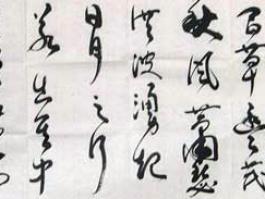 百草丰茂
秋风萧瑟
洪波涌起
日月之行
若出其中